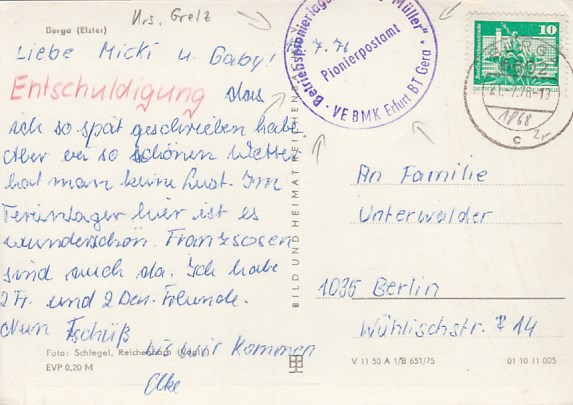 Urs. Greiz
Berga (Elster)
Liebe Micki u Gaby! 7.76
Entschuldigung das
ich so spät geschrieben habe.
Aber bei so schönen Wetter
hat man keine Lust. Im
Ferienlager hier ist es
wunderschön. Franzosen
sind auch da. Ich habe
2 Fr. und 2 Den. Freunde.
Nun Tschüß
bis wir kommen
Elke
Foto: Schlegel, Reichenbach (Vogtl.)
EVP 0,20 M
BILD UND HEIMAT REICHENBACH
Müller"
Pionierpostamt
VE BMK Erfurt BT Gera
10
1868
c
An Familie
Unterwalder
1035 Berlin
Wühlischstr. 14
V 11 50 A 1/B 651/75
01 10 11 005